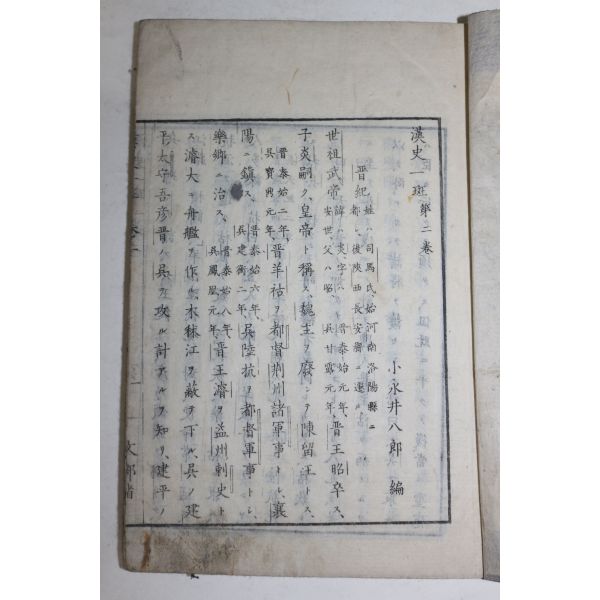 漢史一斑第二卷
小永井八郎 編
晋紀 姓ハ司馬氏、始河南洛陽縣ニ
都シ、後陝西長安縣ニ遷ル
世祖武帝 諱ハ炎、字ハ
安世父ハ昭、 晋泰始元年、
呉甘露元年、 晋王昭卒ス、
子炎嗣ク、皇帝ト稱ス、魏主ヲ廢シヲ陳留王トス、
晋泰始二年、
呉寶鼎元年、 晋羊祜ヲ都督荊州諸軍事トシ、襄
陽ニ鎮ス、 晋泰始六年、
呉建衡二年、 呉陸抗ヲ都督軍事トシ、
樂郷ニ治ス、 晋泰始八年、
呉鳳凰元年、 晋王濬ヲ益州刺史ト
ス、濬大ニ舟艦ヲ作ル、木秣江ヲ蔽ヲ下ル、呉ノ建
平太守吾彦晋ハ呉ヲ攻ル計アルヲ知リ、建平ノ
文部省